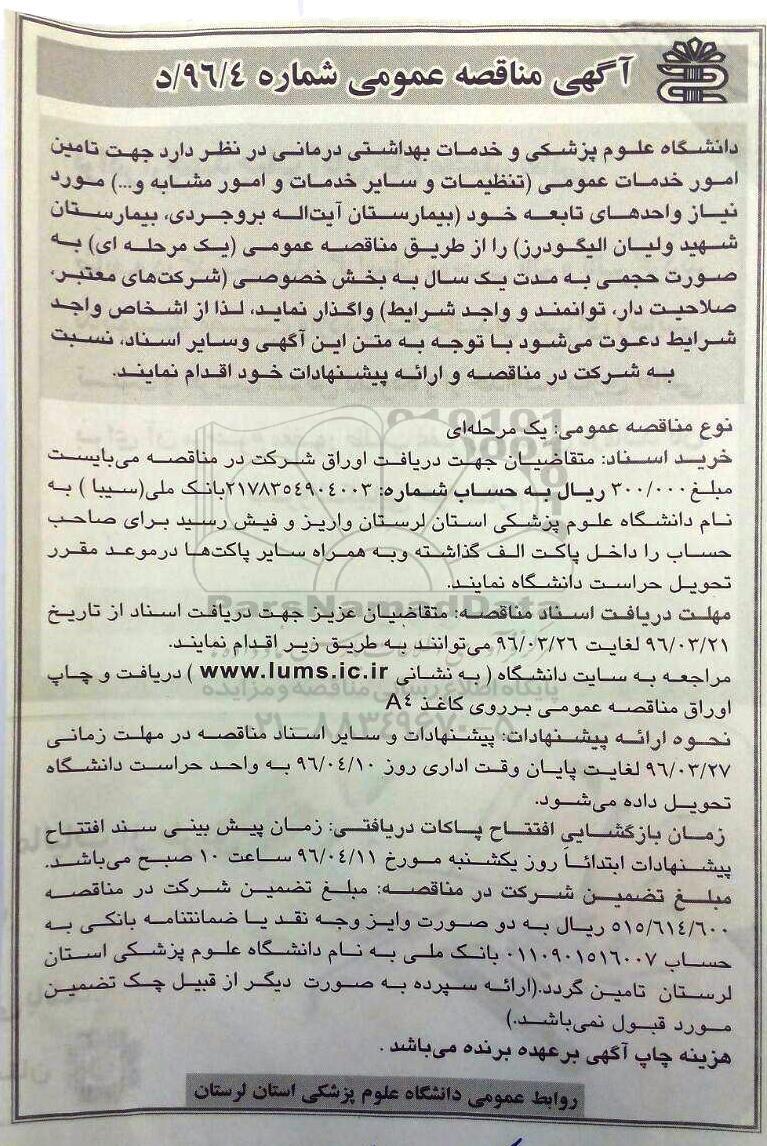 آگهی مناقصه عمومی شماره ۹۶/۴/د
دانشگاه علوم پزشکی و خدمات بهداشتی درمانی در نظر دارد جهت تامین
امور خدمات عمومی (تنظیمات و سایر خدمات و امور مشابه و...) مورد
نیاز واحدهای تابعه خود (بیمارستان آیت‌اله بروجردی، بیمارستان
شهید ولیان الیگودرز) را از طریق مناقصه عمومی (یک مرحله ای) به
صورت حجمی به مدت یک سال به بخش خصوصی (شرکت‌های معتبر،
صلاحیت دار، توانمند و واجد شرایط) واگذار نماید، لذا از اشخاص واجد
شرایط دعوت می‌شود با توجه به متن این آگهی وسایر اسناد، نسبت
به شرکت در مناقصه و ارائه پیشنهادات خود اقدام نمایند.
نوع مناقصه عمومی: یک مرحله‌ای
خرید اسناد: متقاضیان جهت دریافت اوراق شرکت در مناقصه می‌بایست
مبلغ ۳۰۰/۰۰۰ ریال به حساب شماره: ۲۱۷۸۳۵٤۹۰٤۰۰۳بانک ملی(سیبا ) به
نام دانشگاه علوم پزشکی استان لرستان واریز و فیش رسید برای صاحب
حساب را داخل پاکت الف گذاشته وبه همراه سایر پاکت‌ها درموعد مقرر
تحویل حراست دانشگاه نمایند.
مهلت دریافت اسناد مناقصه: متقاضیان عزیز جهت دریافت اسناد از تاریخ
۹۶/۰۳/۲۱ لغایت ۹۶/۰۳/۲۶ می‌توانند به طریق زیر اقدام نمایند.
مراجعه به سایت دانشگاه ( به نشانی www.lums.ic.ir ) دریافت و چاپ
اوراق مناقصه عمومی برروی کاغذ A٤
نحوه ارائه پیشنهادات: پیشنهادات و سایر اسناد مناقصه در مهلت زمانی
۹۶/۰۳/۲۷ لغایت پایان وقت اداری روز ۹۶/۰٤/۱۰ به واحد حراست دانشگاه
تحویل داده می‌شود.
زمان بازگشایی افتتاح پاکات دریافتی: زمان پیش بینی سند افتتاح
پیشنهادات ابتدائاً روز یکشنبه مورخ ۹۶/۰٤/۱۱ ساعت ۱۰ صبح می‌باشد.
مبلغ تضمین شرکت در مناقصه: مبلغ تضمین شرکت در مناقصه
۵۱۵/۶۱٤/۶۰۰ ریال به دو صورت وایز وجه نقد یا ضمانتنامه بانکی به
حساب ۰۱۱۰۹۰۱۵۱۶۰۰۷ بانک ملی به نام دانشگاه علوم پزشکی استان
لرستان تامین گردد.(ارائه سپرده به صورت دیگر از قبیل چک تضمین
مورد قبول نمی‌باشد.)
هزینه چاپ آگهی برعهده برنده می‌باشد .
روابط عمومی دانشگاه علوم پزشکی استان لرستان
ParsNamadData
پایگاه اطلاع رسانی مناقصه و مزایده
۰۲۱-۸۸۳۴۹۶۷۰-۵